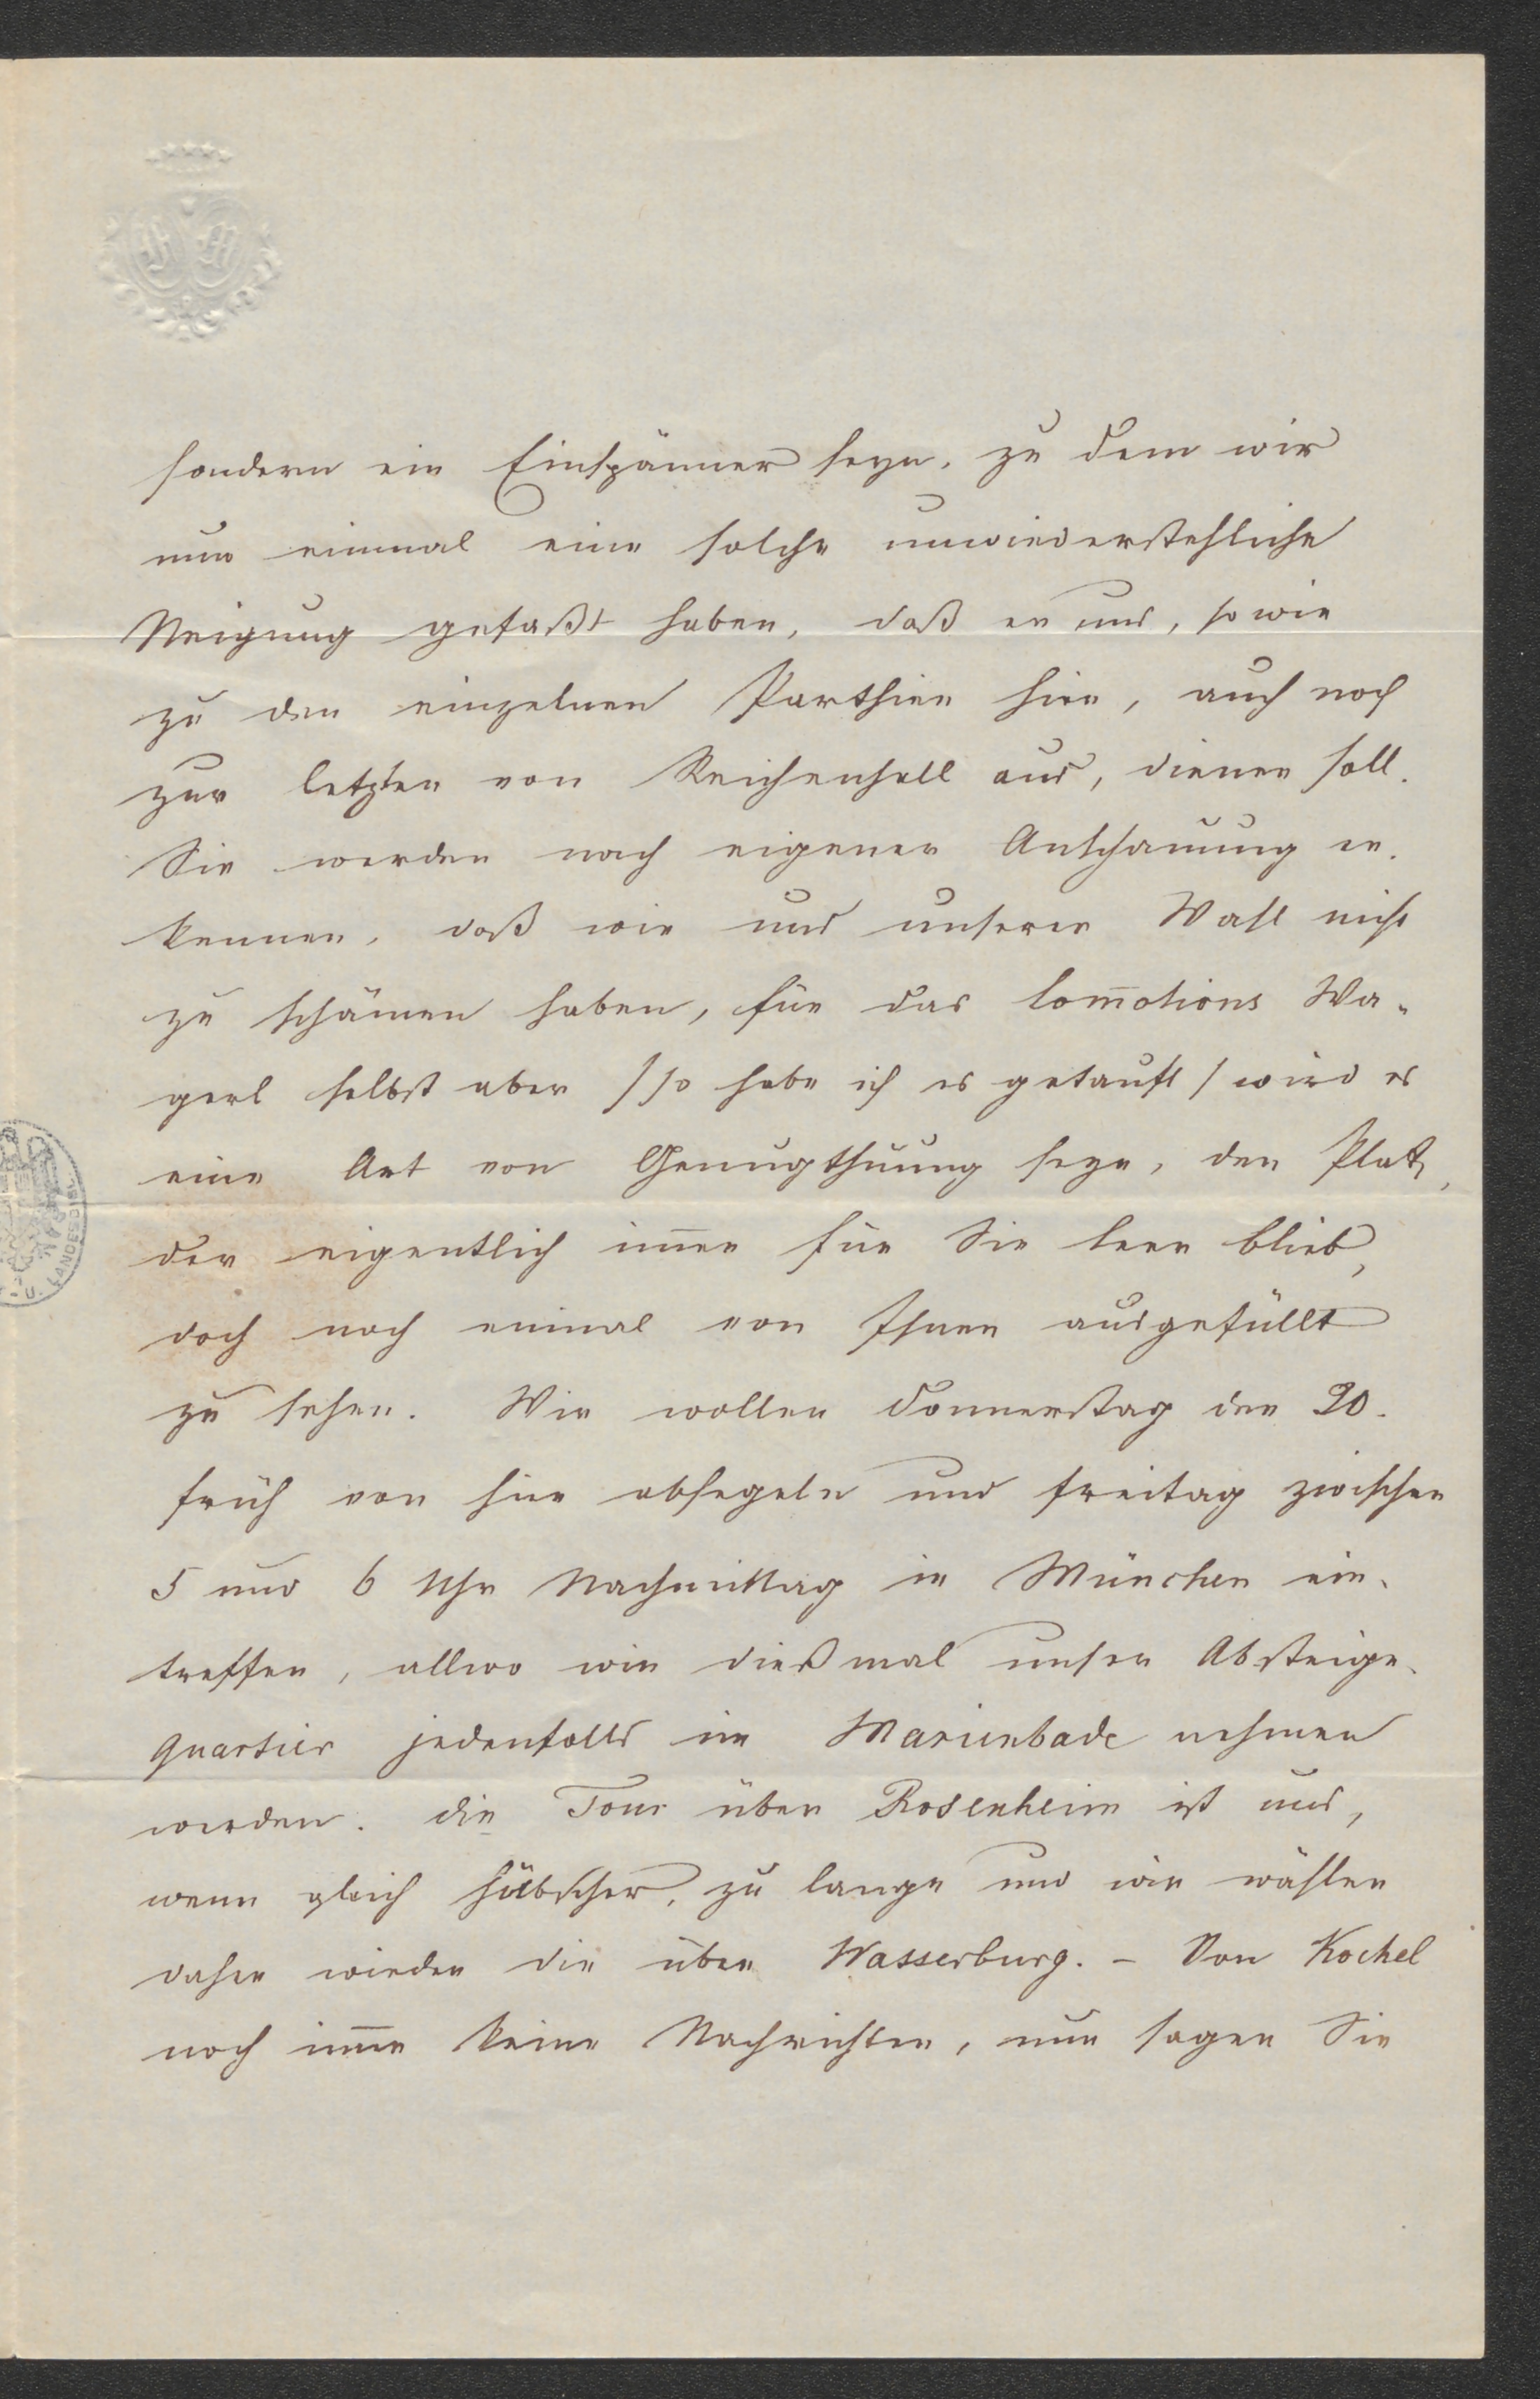 sondern ein Einspänner seyn, zu dem wir
nun einmal eine solche unwiederstehliche
Neigung gefaßt haben, daß er uns, so wie
zu den einzelnen Parthien hier, auch noch
zur letzten von Reichenhall aus, dienen soll.
Sie werden nach eigener Anschauung er-
kennen, daß wir uns unserer Wahl nicht
zu schämen haben, für das Com̅otions Wa-
gerl selbst aber /so habe ich es getauft/ wird es
eine Art von Genugthuung seyn, den Platz,
der eigentlich im̅er für Sie leer blieb,
doch noch einmal von Ihnen ausgefüllt
zu sehen. Wir wollen Donnerstag den 20.
früh von hier absegeln und Freitag zwischen
5 und 6 Uhr Nachmittag in München ein-
treffen, allwo wir dießmal unser Absteige-
quartier jedenfalls im Marienbade nehmen
werden. Die Tour über Rosenheim ist uns,
wenn gleich hübscher, zu lange und wir wählen
daher wieder die über Wasserburg. – Von Kochel
noch im̅er keine Nachrichten, nun sagen Sie
U. LANDESBIBL.